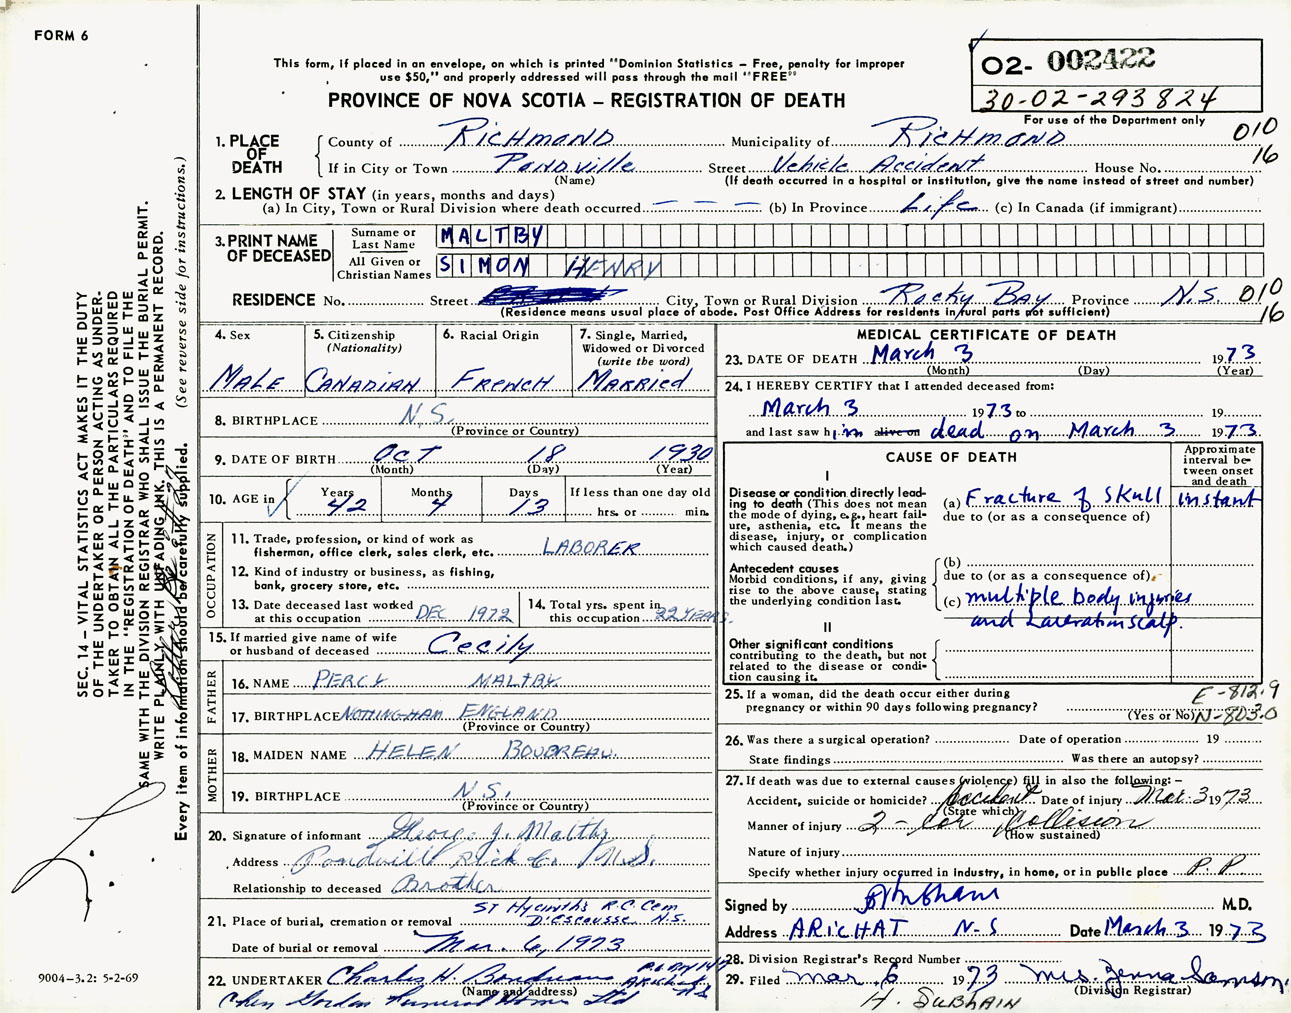 FORM 6
This form, if placed in an envelope, on which is printed "Dominion Statistics – Free, penalty for improper
use $50," and properly addressed will pass through the mail "FREE"
PROVINCE OF NOVA SCOTIA – REGISTRATION OF DEATH
O2- 002422
30-02-293824
For use of the Department only
010
16
1. PLACE OF DEATH County of Richmond Municipality of Richmond
If in City or Town Pondville Street Vehicle Accident House No.
(Name) (If death occurred in a hospital or institution, give the name instead of street and number)
2. LENGTH OF STAY (in years, months and days)
(a) In City, Town or Rural Division where death occurred — — — (b) In Province Life (c) In Canada (if immigrant)
3. PRINT NAME OF DECEASED Surname or Last Name MALTBY
All Given or Christian Names SIMON HENRY
RESIDENCE No. Street City, Town or Rural Division Rocky Bay Province N.S. 010
16
(Residence means usual place of abode. Post Office Address for residents in rural parts not sufficient)
SEC. 14 – VITAL STATISTICS ACT MAKES IT THE DUTY
OF THE UNDERTAKER OR PERSON ACTING AS UNDER-
TAKER TO OBTAIN ALL THE PARTICULARS REQUIRED
IN THE "REGISTRATION OF DEATH" AND TO FILE THE
SAME WITH THE DIVISION REGISTRAR WHO SHALL ISSUE THE BURIAL PERMIT.
WRITE PLAINLY WITH UNFADING INK. THIS IS A PERMANENT RECORD.
Every item of information should be carefully supplied. (See reverse side for instructions.)
4. Sex MALE
5. Citizenship (Nationality) CANADIAN
6. Racial Origin FRENCH
7. Single, Married, Widowed or Divorced (write the word) MARRIED
8. BIRTHPLACE N.S.
(Province or Country)
9. DATE OF BIRTH Oct 18 1930
(Month) (Day) (Year)
10. AGE in Years 42 Months 4 Days 13 If less than one day old
hrs. or min.
OCCUPATION
11. Trade, profession, or kind of work as
fisherman, office clerk, sales clerk, etc. LABORER
12. Kind of industry or business, as fishing,
bank, grocery store, etc.
13. Date deceased last worked at this occupation DEC 1972
14. Total yrs. spent in this occupation 22 YEARS.
15. If married give name of wife
or husband of deceased Cecily
FATHER
16. NAME PERCY MALTBY
17. BIRTHPLACE NOTTINGHAM ENGLAND
(Province or Country)
MOTHER
18. MAIDEN NAME HELEN BOUDREAU.
19. BIRTHPLACE N.S.
(Province or Country)
20. Signature of informant George J. Maltby
Address Pondville Rich Co. N.S.
Relationship to deceased Brother
21. Place of burial, cremation or removal ST Hyacinth's R.C. Cem
D'Escousse N.S.
Date of burial or removal Mar. 6, 1973
22. UNDERTAKER Charles H. Boudreau
(Name and address) ARICHAT NS
Funeral Home Ltd
MEDICAL CERTIFICATE OF DEATH
23. DATE OF DEATH March 3 1973
(Month) (Day) (Year)
24. I HEREBY CERTIFY that I attended deceased from:
March 3 1973 to 19
and last saw him alive on dead on March 3 1973
CAUSE OF DEATH
Approximate interval between onset and death
I
Disease or condition directly lead-
ing to death (This does not mean
the mode of dying, e.g., heart fail-
ure, asthenia, etc. It means the
disease, injury, or complication
which caused death.)
(a) Fracture of Skull instant
due to (or as a consequence of)
Antecedent causes
Morbid conditions, if any, giving
rise to the above cause, stating
the underlying condition last.
(b)
due to (or as a consequence of)
(c) multiple body injuries
and Laceration scalp.
II
Other significant conditions
contributing to the death, but not
related to the disease or condi-
tion causing it.
25. If a woman, did the death occur either during
pregnancy or within 90 days following pregnancy?
(Yes or No)
E-812.9
N-803.0
26. Was there a surgical operation? Date of operation 19
State findings Was there an autopsy?
27. If death was due to external causes (violence) fill in also the following: –
Accident, suicide or homicide? Accident Date of injury Mar. 3 1973
(State which)
Manner of injury 2-car Collision
(How sustained)
Nature of injury
Specify whether injury occurred in industry, in home, or in public place P.P.
Signed by M.D.
Address ARICHAT N-S Date March 3 1973
28. Division Registrar's Record Number
29. Filed Mar. 6 1973 Mrs. Samson
(Division Registrar)
H. SUBHAIN
9004-3.2: 5-2-69